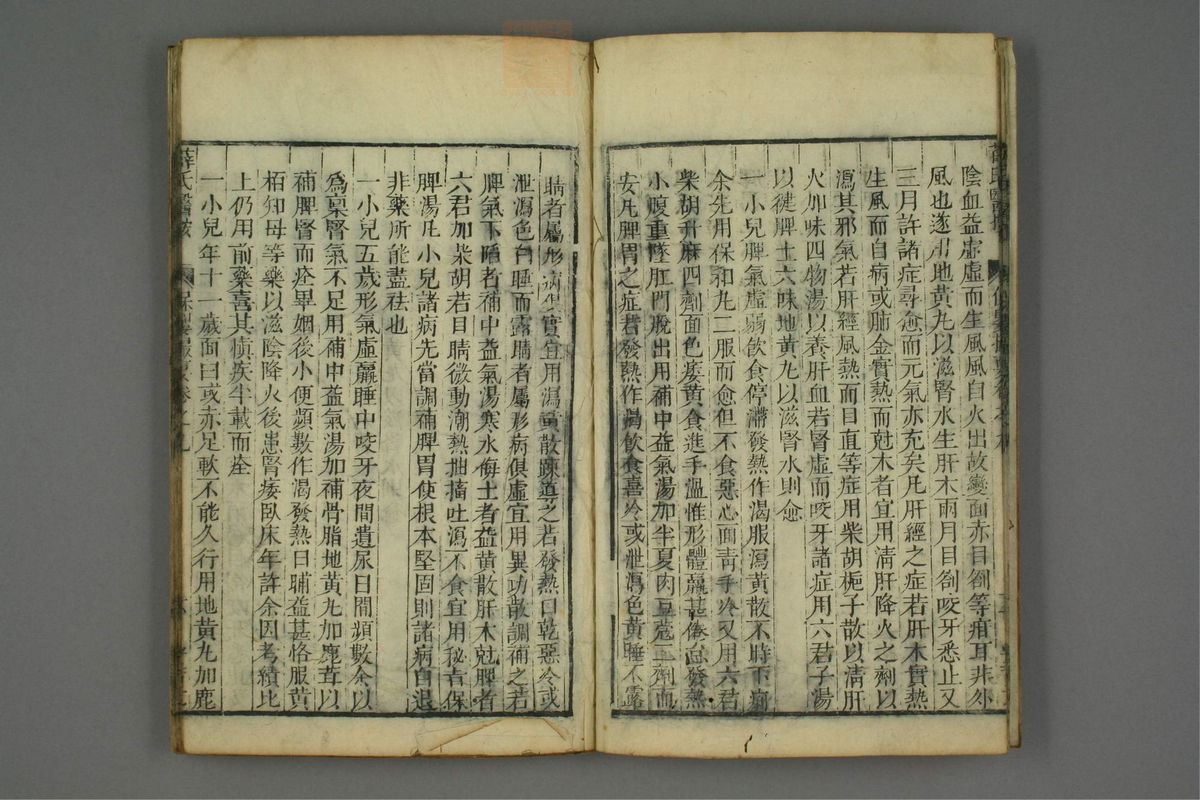 陰血益虛虛而生風風自火出故變面赤目劄等疳耳非外
風也遂用地黃丸以滋腎水生肝木兩月目劄咬牙悉止又
三月許諸症尋愈而元氣亦充矣凡肝經之症若肝木實熱
生風而自病或肺金實熱而尅木者宜用淸肝降火之劑以
瀉其邪氣若肝經風熱而目直等症用柴胡梔子散以淸肝
火加味四物湯以養肝血若腎虛而咬牙諸症用六君子湯
以健脾土六味地黃丸以滋腎水則愈
一小兒脾氣虛弱飲食停滯發熱作渴服瀉黃散不時下痢
余先用保和丸二服而愈但不食惡心面靑手冷又用六君
柴胡升麻四劑面色痿黃食進手溫惟形體羸甚倦怠發熱
小腹重墜肛門脫出用補中益氣湯加半夏肉豆蔻二劑而
安凡脾胃之症若發熱作渴飲食喜冷或泄瀉色黃睡不露
睛者屬形病俱實宜用瀉黃散疎導之若發熱口乾惡冷或
泄瀉色白睡而露睛者屬形病俱虛宜用異功散調補之若
脾氣下陷者補中益氣湯寒水侮土者益黃散肝木尅脾者
六君加柴胡若目睛微動潮熱抽搐吐瀉不食宜用秘旨保
脾湯凡小兒諸病先當調補脾胃使根本堅固則諸病自退
非藥所能盡祛也
一小兒五歲形氣虛羸睡中咬牙夜間遺尿日間頻數余以
爲稟腎氣不足用補中益氣湯加補骨脂地黃丸加鹿茸以
補脾腎而痊畢姻後小便頻數作渴發熱日晡益甚恪服黃
栢知母等藥以滋陰降火後患腎痿臥床年許余因考績北
上仍用前藥喜其愼疾半載而痊
一小兒年十一歲面白或赤足軟不能久行用地黃丸加鹿
薛氏醫按
保嬰撮要卷之九